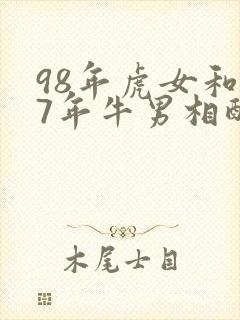 98年虎女和
7年牛男相配
木尾士目